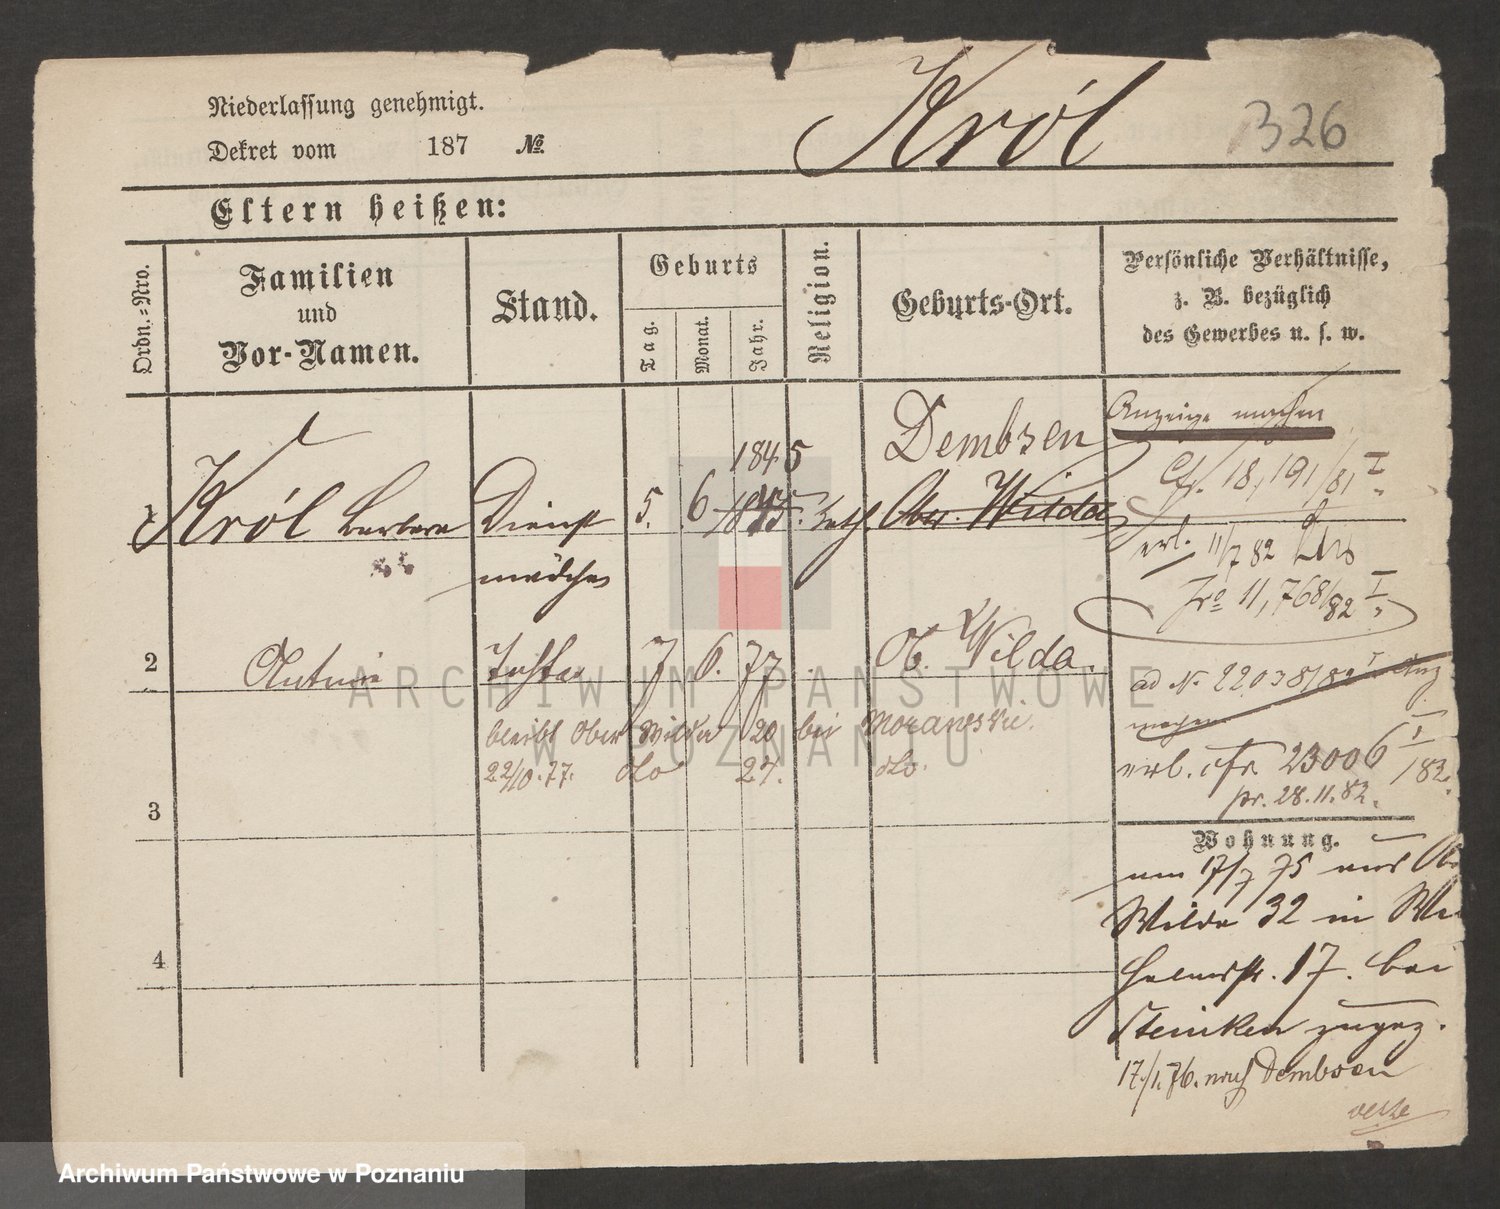 Niederlassung genehmigt.
Dekret vom 187 №
Król 326
Eltern heißen:
Ordn.-Nro.
Familien
und
Vor-Namen.
Stand.
Geburts
Tag.
Monat.
Jahr.
Religion.
Geburts-Ort.
Persönliche Verhältnisse,
z. B. bezüglich
des Gewerbes u. s. w.
1 Król Barbara Dienst
mädchen
5. 6 1845
1845. kath
Dembsen
Ober. Wilda
Anzeige machen
Cfr. 18,191/81 I
erl. 11/7 82
Jro 11,768/82 I
2 Antonie Tochter 7 6. 77 . Ob. Wilda.
ad N. 22038/82 I Anz
machen
bleibt Ober Wilda 20 bei
22/10.77. dto 27. dto.
erl. cfr 23006 I/82.
pr. 28.11.82.
3
4
Wohnung.
am 17/7 75 aus Ob
Wilda 32 in Wil
helmstr. 17. bei
Steinken zugez.
17./1.76. nach Dembsen
ARCHIWUM PAŃSTWOWE
W POZNANIU
Archiwum Państwowe w Poznaniu